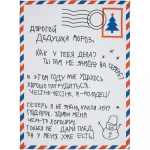 ДОРОГОЙ
ДЕДУШКА МОРОЗ,
КАК У ТЕБЯ ДЕЛА?
ТЫ ТАМ НЕ ЗАМЁРЗ НА СЕВЕРЕ?
В ЭТОМ ГОДУ МНЕ УДАЛОСЬ
ХОРОШО ПОТРУДИТЬСЯ.
ЧЕСТНО-ЧЕСТНО, Я - МОЛОДЕЦ!
ТЕПЕРЬ Я НЕ ЗНАЮ, КАКОЙ ХОЧУ
ПОДАРОК. УДИВИ МЕНЯ
ЧЕМ-ТО ХОРОШИМ.
ТОЛЬКО НЕ ДАРИ ПЛЕД,
ОН У МЕНЯ УЖЕ ЕСТЬ!